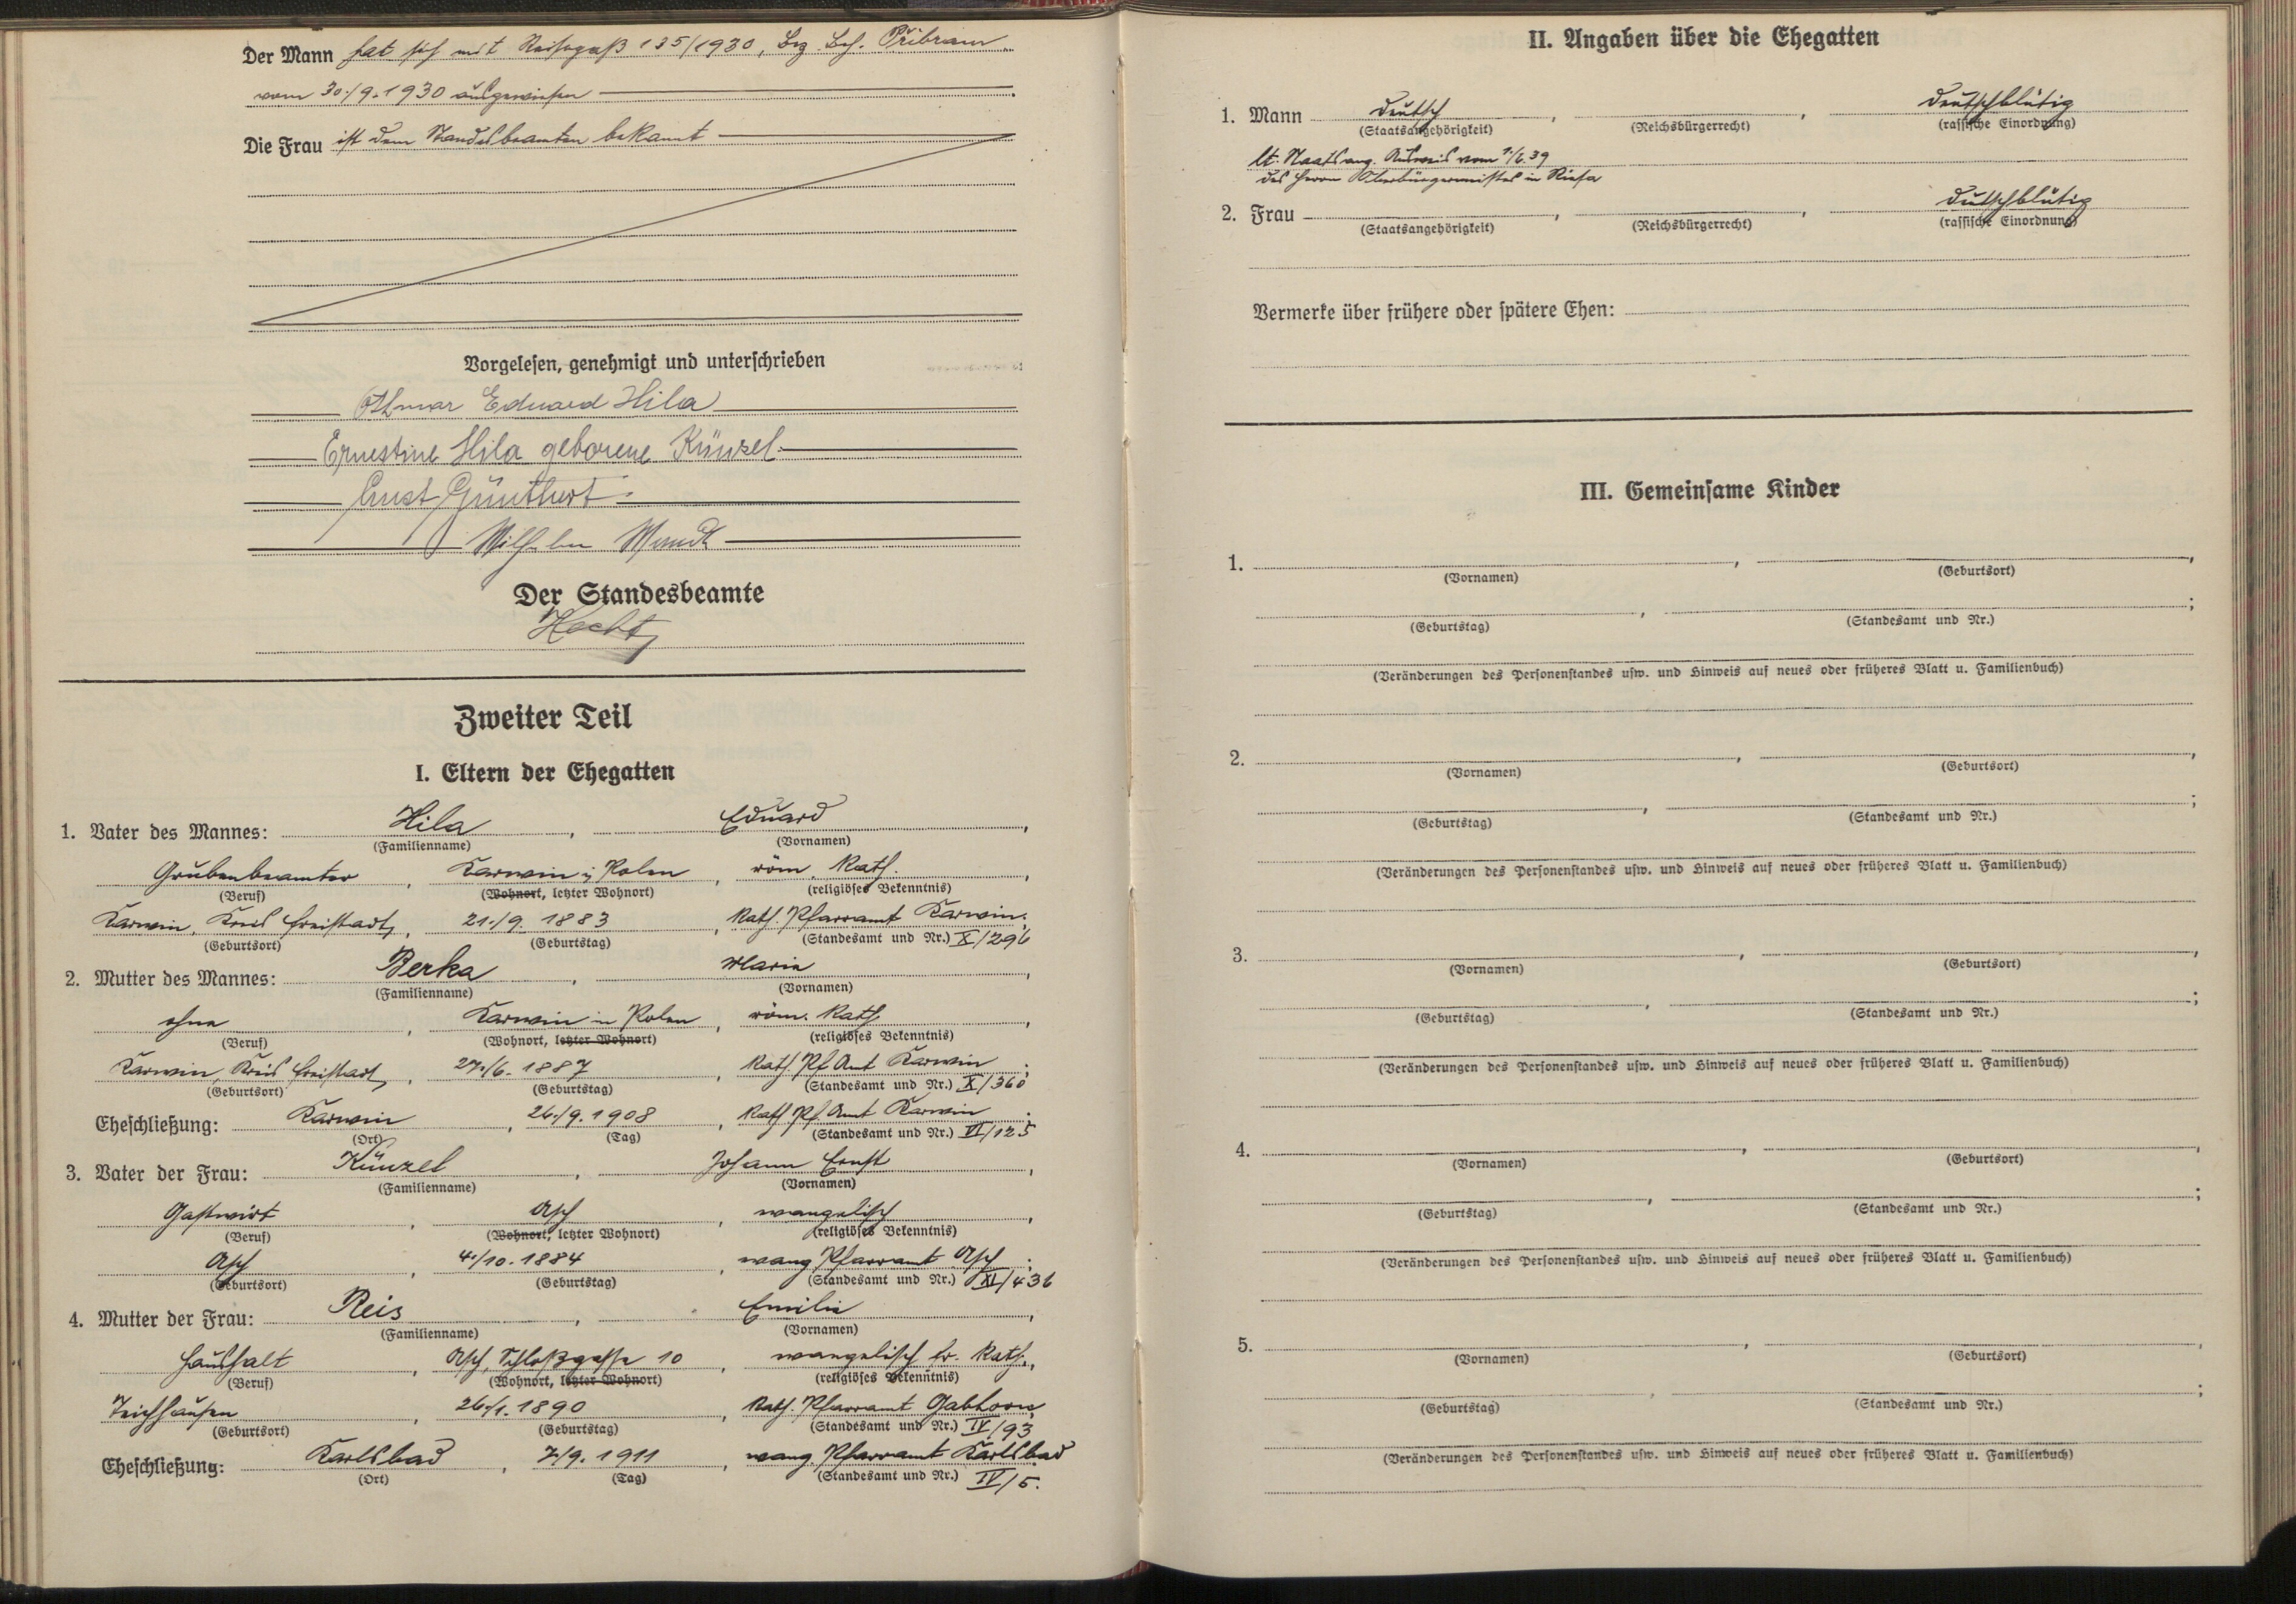 Der Mann hat sich mit Reisepaß 135/1930, Bez. Beh. Přibram
vom 30./9.1930 ausgewiesen
Die Frau ist dem Standesbeamten bekannt
Vorgelesen, genehmigt und unterschrieben
Othmar Eduard Hila
Ernestine Hila geborene Künzel
Ernst Günthert
Wilhelm
Der Standesbeamte
Hecht
Zweiter Teil
I. Eltern der Ehegatten
1. Vater des Mannes: Hila, Eduard,
(Familienname) (Vornamen)
Grubenbeamter, Karwin i/ Polen, röm. kath.,
(Beruf) (Wohnort, letzter Wohnort) (religiöses Bekenntnis)
Karwin, Kreis Freistadt, 21./9. 1883, Kath. Pfarramt Karwin;
(Geburtsort) (Geburtstag) (Standesamt und Nr.) X/296
2. Mutter des Mannes: Berka, Maria,
(Familienname) (Vornamen)
ohne, Karwin in Polen, röm. kath.,
(Beruf) (Wohnort, letzter Wohnort) (religiöses Bekenntnis)
Karwin, Kreis Freistadt, 27./6. 1887, Kath. Pf Amt Karwin;
(Geburtsort) (Geburtstag) (Standesamt und Nr.) X/360
Eheschließung: Karwin, 26./9. 1908, Kath Pf. Amt Karwin;
(Ort) (Tag) (Standesamt und Nr.) VI/125
3. Vater der Frau: Künzel, Johann Ernst,
(Familienname) (Vornamen)
Gastwirt, Asch, evangelisch,
(Beruf) (Wohnort, letzter Wohnort) (religiöses Bekenntnis)
Asch, 4./10. 1884, evang Pfarramt Asch;
(Geburtsort) (Geburtstag) (Standesamt und Nr.) XI/436
4. Mutter der Frau: Reis, Emilie,
(Familienname) (Vornamen)
Haushalt, Asch, Schloßgasse 10, evangelisch fr. kath.,
(Beruf) (Wohnort, letzter Wohnort) (religiöses Bekenntnis)
Teichhäusen, 26./1. 1890, Kath. Pfarramt Gabhorn;
(Geburtsort) (Geburtstag) (Standesamt und Nr.) IV/93
Eheschließung: Karlsbad, 7./9. 1911, evang Pfarramt Karlsbad
(Ort) (Tag) (Standesamt und Nr.) IV/5.
II. Angaben über die Ehegatten
1. Mann deutsch, , deutschblütig
(Staatsangehörigkeit) (Reichsbürgerrecht) (rassische Einordnung)
lt. Staatsang. Ausweis vom 1./6.39
des Herrn Oberbürgermeisters in Riesa
2. Frau , , deutschblütig
(Staatsangehörigkeit) (Reichsbürgerrecht) (rassische Einordnung)
Vermerke über frühere oder spätere Ehen:
III. Gemeinsame Kinder
1. , ,
(Vornamen) (Geburtsort)
, ;
(Geburtstag) (Standesamt und Nr.)
(Veränderungen des Personenstandes usw. und Hinweis auf neues oder früheres Blatt u. Familienbuch)
2. , ,
(Vornamen) (Geburtsort)
, ;
(Geburtstag) (Standesamt und Nr.)
(Veränderungen des Personenstandes usw. und Hinweis auf neues oder früheres Blatt u. Familienbuch)
3. , ,
(Vornamen) (Geburtsort)
, ;
(Geburtstag) (Standesamt und Nr.)
(Veränderungen des Personenstandes usw. und Hinweis auf neues oder früheres Blatt u. Familienbuch)
4. , ,
(Vornamen) (Geburtsort)
, ;
(Geburtstag) (Standesamt und Nr.)
(Veränderungen des Personenstandes usw. und Hinweis auf neues oder früheres Blatt u. Familienbuch)
5. , ,
(Vornamen) (Geburtsort)
, ;
(Geburtstag) (Standesamt und Nr.)
(Veränderungen des Personenstandes usw. und Hinweis auf neues oder früheres Blatt u. Familienbuch)